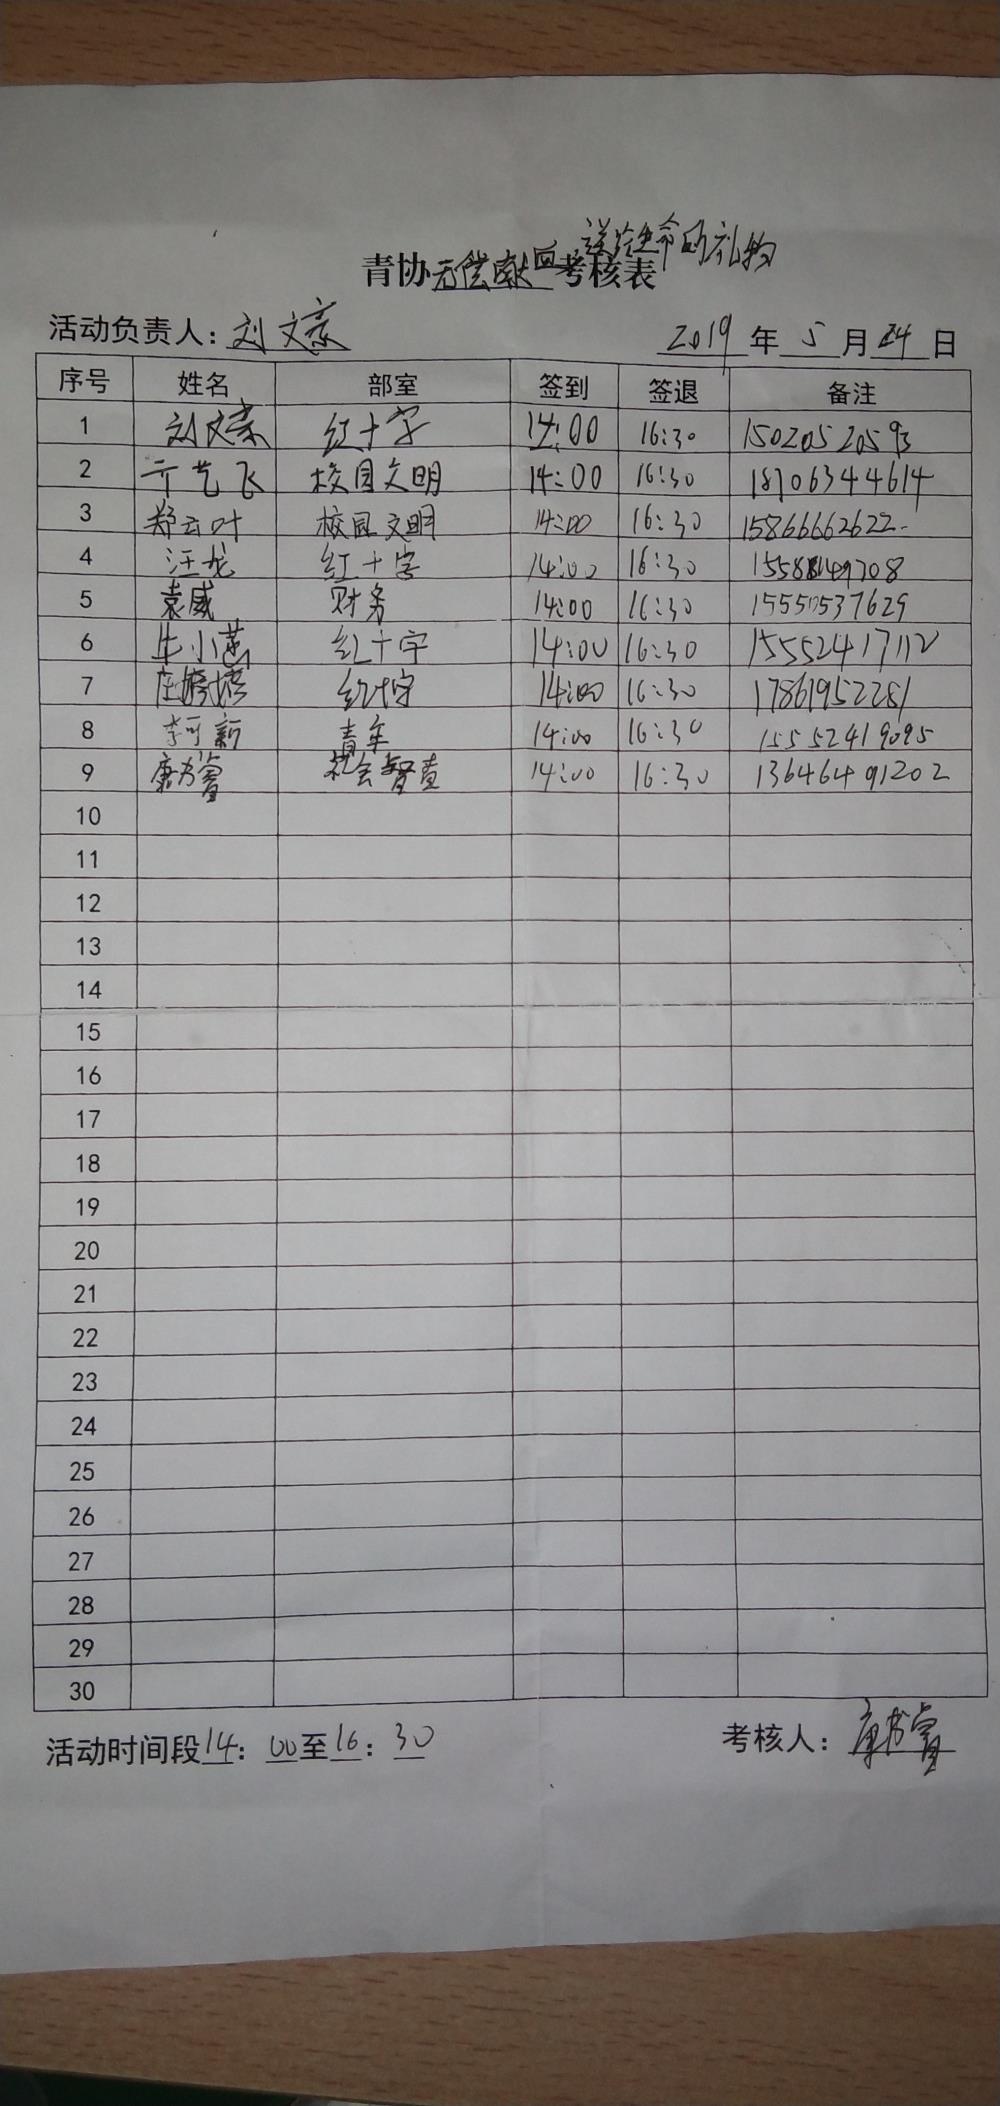 送给生命的礼物
青协无偿献血考核表
活动负责人：刘文豪 2019年5月24日
序号 姓名 部室 签到 签退 备注
1 刘文豪 红十字 14:00 16:30 15020520593
2 亓艺飞 校园文明 14:00 16:30 18706344614
3 郑云叶 校园文明 14:00 16:30 15866662622
4 汪龙 红十字 14:00 16:30
5 袁威 财务 14:00 16:30 15550537629
6 牛小 红十字 14:00 16:30 15552417112
7 庄婷婷 红十字 14:00 16:30 17861952281
8 李可新 青年 14:00 16:30 15552419095
9 康书睿 社会督查 14:00 16:30 13646491202
10
11
12
13
14
15
16
17
18
19
20
21
22
23
24
25
26
27
28
29
30
活动时间段14：00至16：30 考核人：康书睿